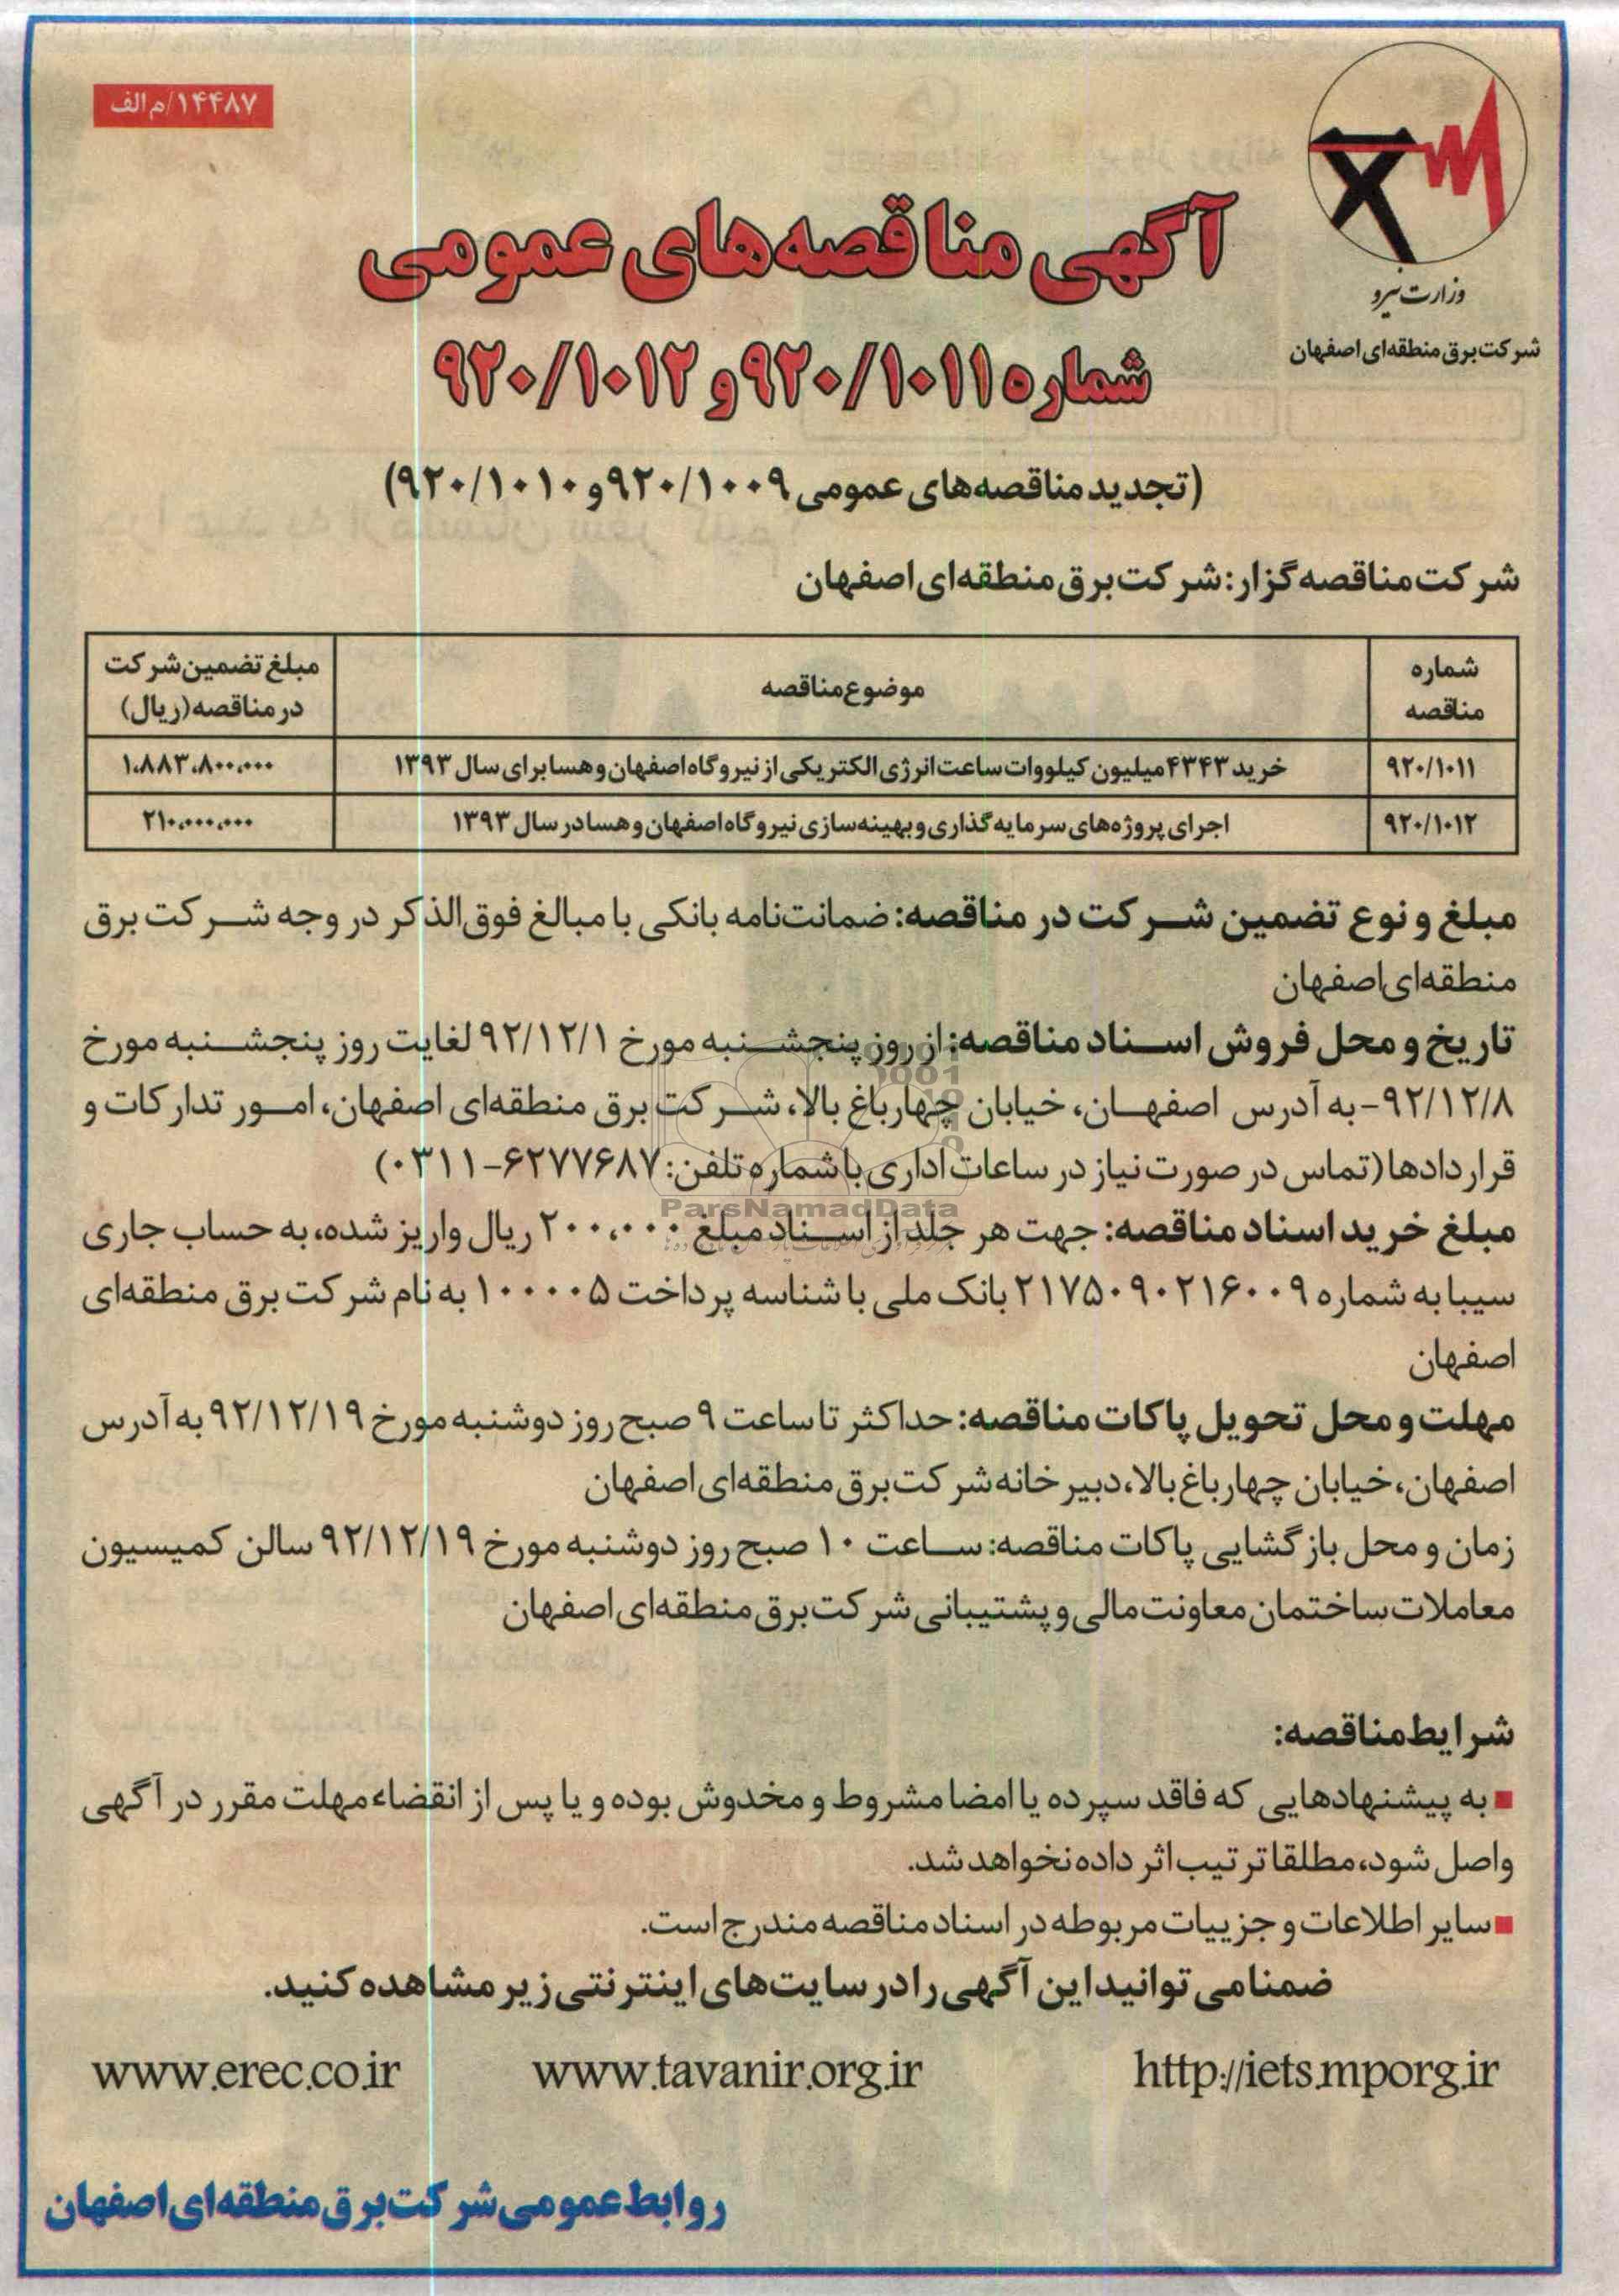 ۱۴۴۸۷/م الف
وزارت نیرو
شرکت برق منطقه‌ای اصفهان
آگهی مناقصه‌های عمومی
شماره ۹۲۰/۱۰۱۱ و ۹۲۰/۱۰۱۲
(تجدید مناقصه‌های عمومی ۹۲۰/۱۰۰۹ و ۹۲۰/۱۰۱۰)
شرکت مناقصه گزار: شرکت برق منطقه‌ای اصفهان
شماره مناقصه	موضوع مناقصه	مبلغ تضمین شرکت در مناقصه (ریال)
۹۲۰/۱۰۱۱	خرید ۴۳۴۳ میلیون کیلووات ساعت انرژی الکتریکی از نیروگاه اصفهان و هسا برای سال ۱۳۹۳	۱،۸۸۳،۸۰۰،۰۰۰
۹۲۰/۱۰۱۲	اجرای پروژه‌های سرمایه گذاری و بهینه سازی نیروگاه اصفهان و هسا در سال ۱۳۹۳	۲۱۰،۰۰۰،۰۰۰
مبلغ و نوع تضمین شرکت در مناقصه: ضمانت‌نامه بانکی با مبالغ فوق‌الذکر در وجه شرکت برق
منطقه‌ای اصفهان
تاریخ و محل فروش اسناد مناقصه: از روز پنجشنبه مورخ ۹۲/۱۲/۱ لغایت روز پنجشنبه مورخ
۹۲/۱۲/۸- به آدرس اصفهان، خیابان چهارباغ بالا، شرکت برق منطقه‌ای اصفهان، امور تدارکات و
قراردادها (تماس در صورت نیاز در ساعات اداری با شماره تلفن: ۶۲۷۷۶۸۷-۰۳۱۱)
مبلغ خرید اسناد مناقصه: جهت هر جلد از اسناد مبلغ ۲۰۰،۰۰۰ ریال واریز شده، به حساب جاری
سیبا به شماره ۲۱۷۵۰۹۰۲۱۶۰۰۹ بانک ملی با شناسه پرداخت ۱۰۰۰۰۵ به نام شرکت برق منطقه‌ای
اصفهان
مهلت و محل تحویل پاکات مناقصه: حداکثر تا ساعت ۹ صبح روز دوشنبه مورخ ۹۲/۱۲/۱۹ به آدرس
اصفهان، خیابان چهارباغ بالا، دبیرخانه شرکت برق منطقه‌ای اصفهان
زمان و محل بازگشایی پاکات مناقصه: ساعت ۱۰ صبح روز دوشنبه مورخ ۹۲/۱۲/۱۹ سالن کمیسیون
معاملات ساختمان معاونت مالی و پشتیبانی شرکت برق منطقه‌ای اصفهان
شرایط مناقصه:
■ به پیشنهادهایی که فاقد سپرده یا امضا مشروط و مخدوش بوده و یا پس از انقضاء مهلت مقرر در آگهی
واصل شود، مطلقا ترتیب اثر داده نخواهد شد.
■ سایر اطلاعات و جزییات مربوطه در اسناد مناقصه مندرج است.
ضمنا می توانید این آگهی را در سایت‌های اینترنتی زیر مشاهده کنید.
http://iets.mporg.ir	www.tavanir.org.ir	www.erec.co.ir
روابط عمومی شرکت برق منطقه‌ای اصفهان
ParsNamadData